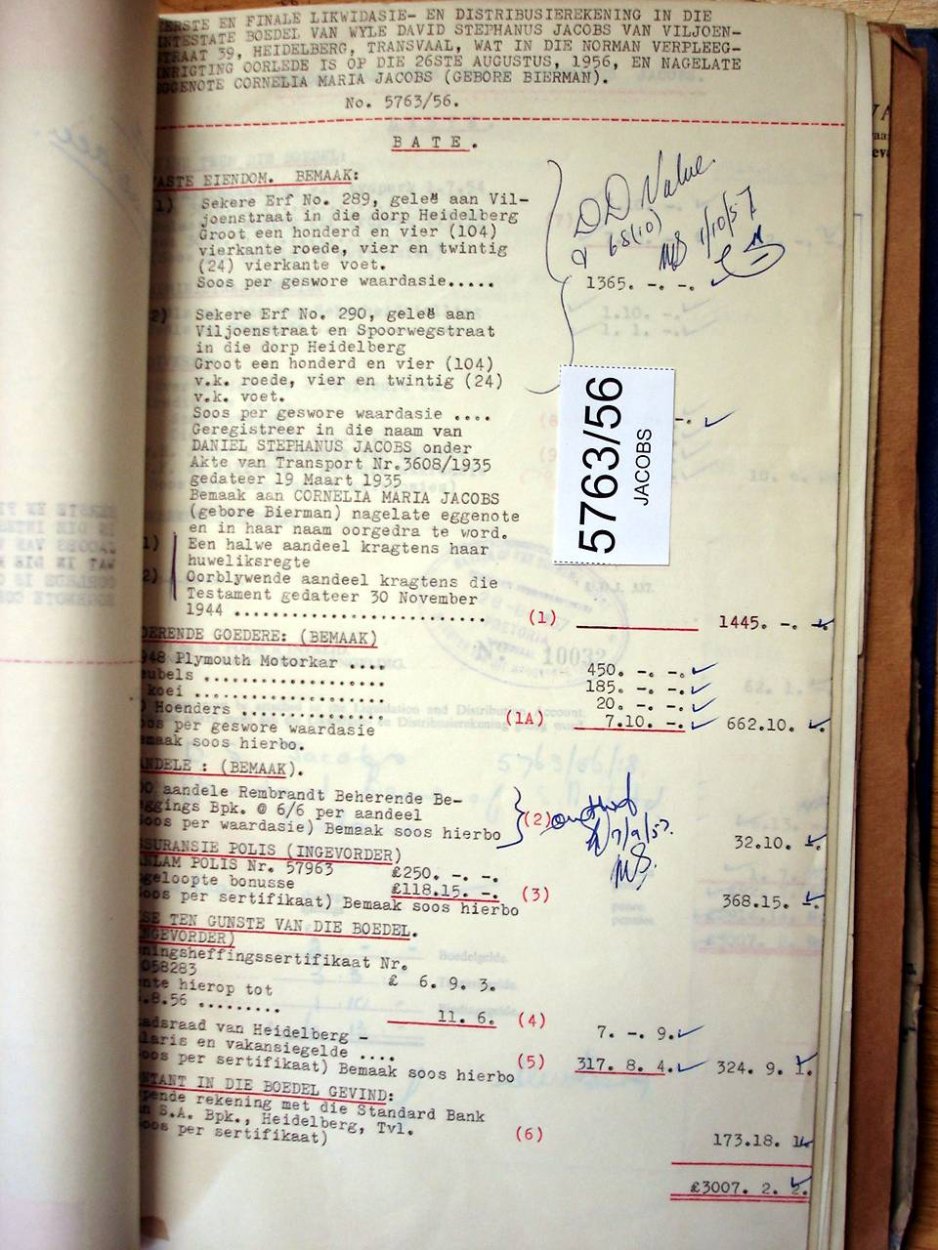 EERSTE EN FINALE LIKWIDASIE- EN DISTRIBUSIEREKENING IN DIE
INTESTATE BOEDEL VAN WYLE DAVID STEPHANUS JACOBS VAN VILJOEN-
STRAAT 39, HEIDELBERG, TRANSVAAL, WAT IN DIE NORMAN VERPLEEG-
INRIGTING OORLEDE IS OP DIE 26STE AUGUSTUS, 1956, EN NAGELATE
EGGENOTE CORNELIA MARIA JACOBS (GEBORE BIERMAN).
No. 5763/56.
BATE.
VASTE EIENDOM. BEMAAK:
1) Sekere Erf No. 289, geleë aan Vil-
joenstraat in die dorp Heidelberg
Groot een honderd en vier (104)
vierkante roede, vier en twintig
(24) vierkante voet.
Soos per geswore waardasie..... 1365. -. -.
DD Value
68(10)
MS 1/10/57
2) Sekere Erf No. 290, geleë aan
Viljoenstraat en Spoorwegstraat
in die dorp Heidelberg
Groot een honderd en vier (104)
v.k. roede, vier en twintig (24)
v.k. voet.
Soos per geswore waardasie .... -.
Geregistreer in die naam van
DANIEL STEPHANUS JACOBS onder
Akte van Transport Nr.3608/1935
gedateer 19 Maart 1935
Bemaak aan CORNELIA MARIA JACOBS
(gebore Bierman) nagelate eggenote
en in haar naam oorgedra te word.
1) Een halwe aandeel kragtens haar
huweliksregte
2) Oorblywende aandeel kragtens die
Testament gedateer 30 November
1944 .............................. (1) 1445. -. -.
5763/56
JACOBS
10032
ROERENDE GOEDERE: (BEMAAK)
1948 Plymouth Motorkar .... 450. -. -.
Meubels .................. 185. -. -.
koei ..................... 20. -. -.
Hoenders ............... (1A) 7.10. -. 662.10. -.
Soos per geswore waardasie
Bemaak soos hierbo.
AANDELE : (BEMAAK).
aandele Rembrandt Beherende Be-
leggings Bpk. @ 6/6 per aandeel
(Soos per waardasie) Bemaak soos hierbo (2) 32.10. -.
7/9/57.
MS.
ASSURANSIE POLIS (INGEVORDER)
SANLAM POLIS Nr. 57963 £250. -. -.
Opgeloopte bonusse £118.15. -. (3)
(Soos per sertifikaat) Bemaak soos hierbo 368.15. -.
EISE TEN GUNSTE VAN DIE BOEDEL.
(INGEVORDER)
Leningsheffingssertifikaat Nr.
058283 £ 6. 9. 3.
Rente hierop tot
.8.56 ......... 11. 6. (4) 7. -. 9.
Stadsraad van Heidelberg -
Salaris en vakansiegelde ....
(Soos per sertifikaat) Bemaak soos hierbo (5) 317. 8. 4. 324. 9. 1.
KONTANT IN DIE BOEDEL GEVIND:
Lopende rekening met die Standard Bank
van S.A. Bpk., Heidelberg, Tvl.
(Soos per sertifikaat) (6) 173.18. 1.
£3007. 2. 2.